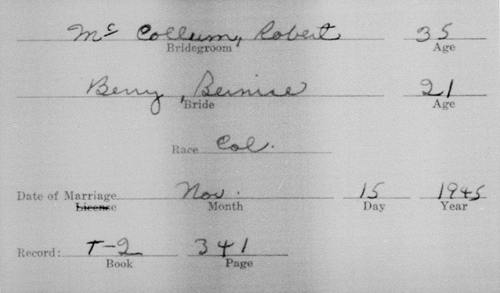 Mc Collum, Robert 35
Bridegroom Age
Berry, Bernice 21
Bride Age
Race Col.
Date of Marriage Nov. 15 1945
License Month Day Year
Record: T-2 341
Book Page